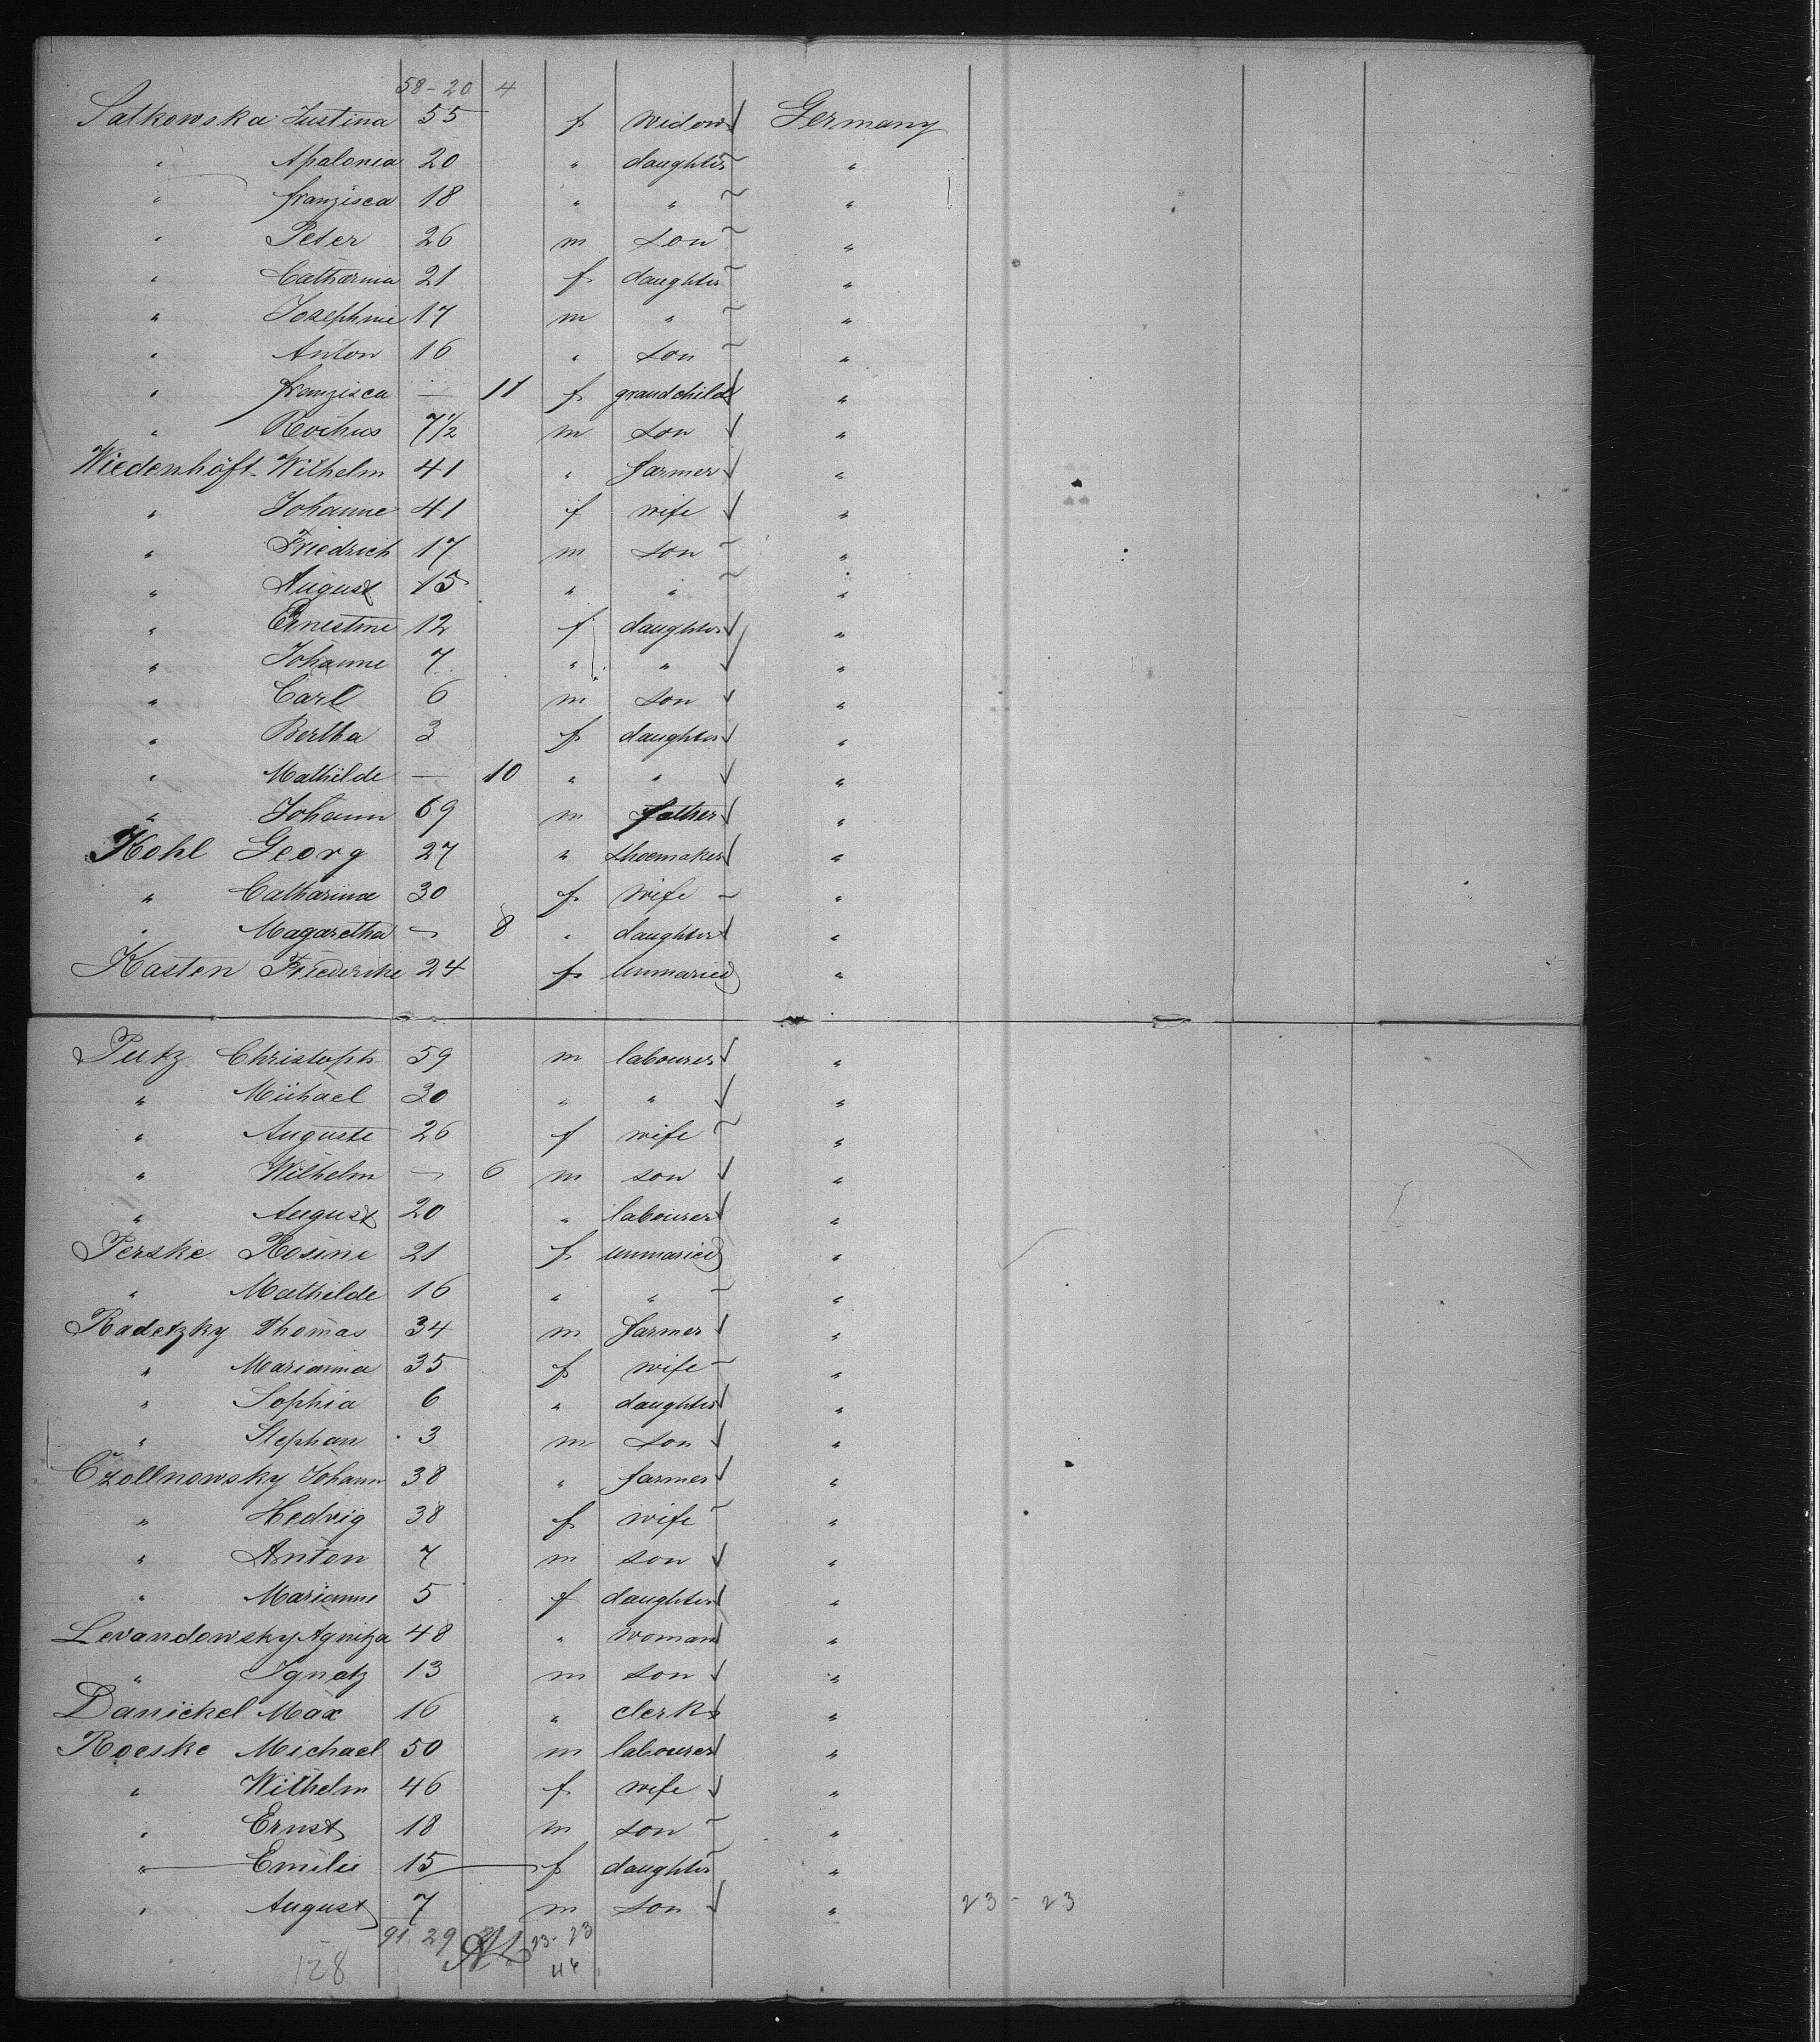 58-20 4
Satkowska Justina 55 f widow Germany
" Apalonia 20 " daughter "
" franzisca 18 " " "
" Peter 26 m son "
" Catharina 21 f daughter "
" Josephine 17 m " "
" Anton 16 " son "
" franzisca — 11 f grandchild "
" Rochus 7 1/2 m son "
Wiedenhöft Wilhelm 41 " farmer "
" Johanne 41 f wife "
" Friedrich 17 m son "
" August 15 " " "
" Ernestine 12 f daughter "
" Johanne 7 " " "
" Carl 6 m son "
" Bertha 3 f daughter "
" Mathilde — 10 " " "
" Johann 69 m father "
Kohl Georg 27 " shoemaker "
" Catharina 30 f wife "
" Magaretha — 8 " daughter "
Kasten Friederike 24 f unmaried "
Putz Christoph 59 m labourer "
" Michael 30 " " "
" Auguste 26 f wife "
" Wilhelm — 6 m son "
" August 20 " labourer "
Perske Rosine 21 f unmaried "
" Mathilde 16 " " "
Radetzky Thomas 34 m farmer "
" Marianna 35 f wife "
" Sophia 6 " daughter "
" Stephan 3 m son "
Czollnowsky Johann 38 " farmer "
" Hedvig 38 f wife "
" Anton 7 m son "
" Marianne 5 f daughter "
Levandowsky Agnitza 48 " woman "
" Ignatz 13 m son "
Danickel Max 16 " clerk "
Roeske Michael 50 m labourer "
" Wilhelm 46 f wife "
" Ernst 18 m son "
" Emilie 15 f daughter "
" August 7 m son " 23 - 23
91 29 23-23
128 46